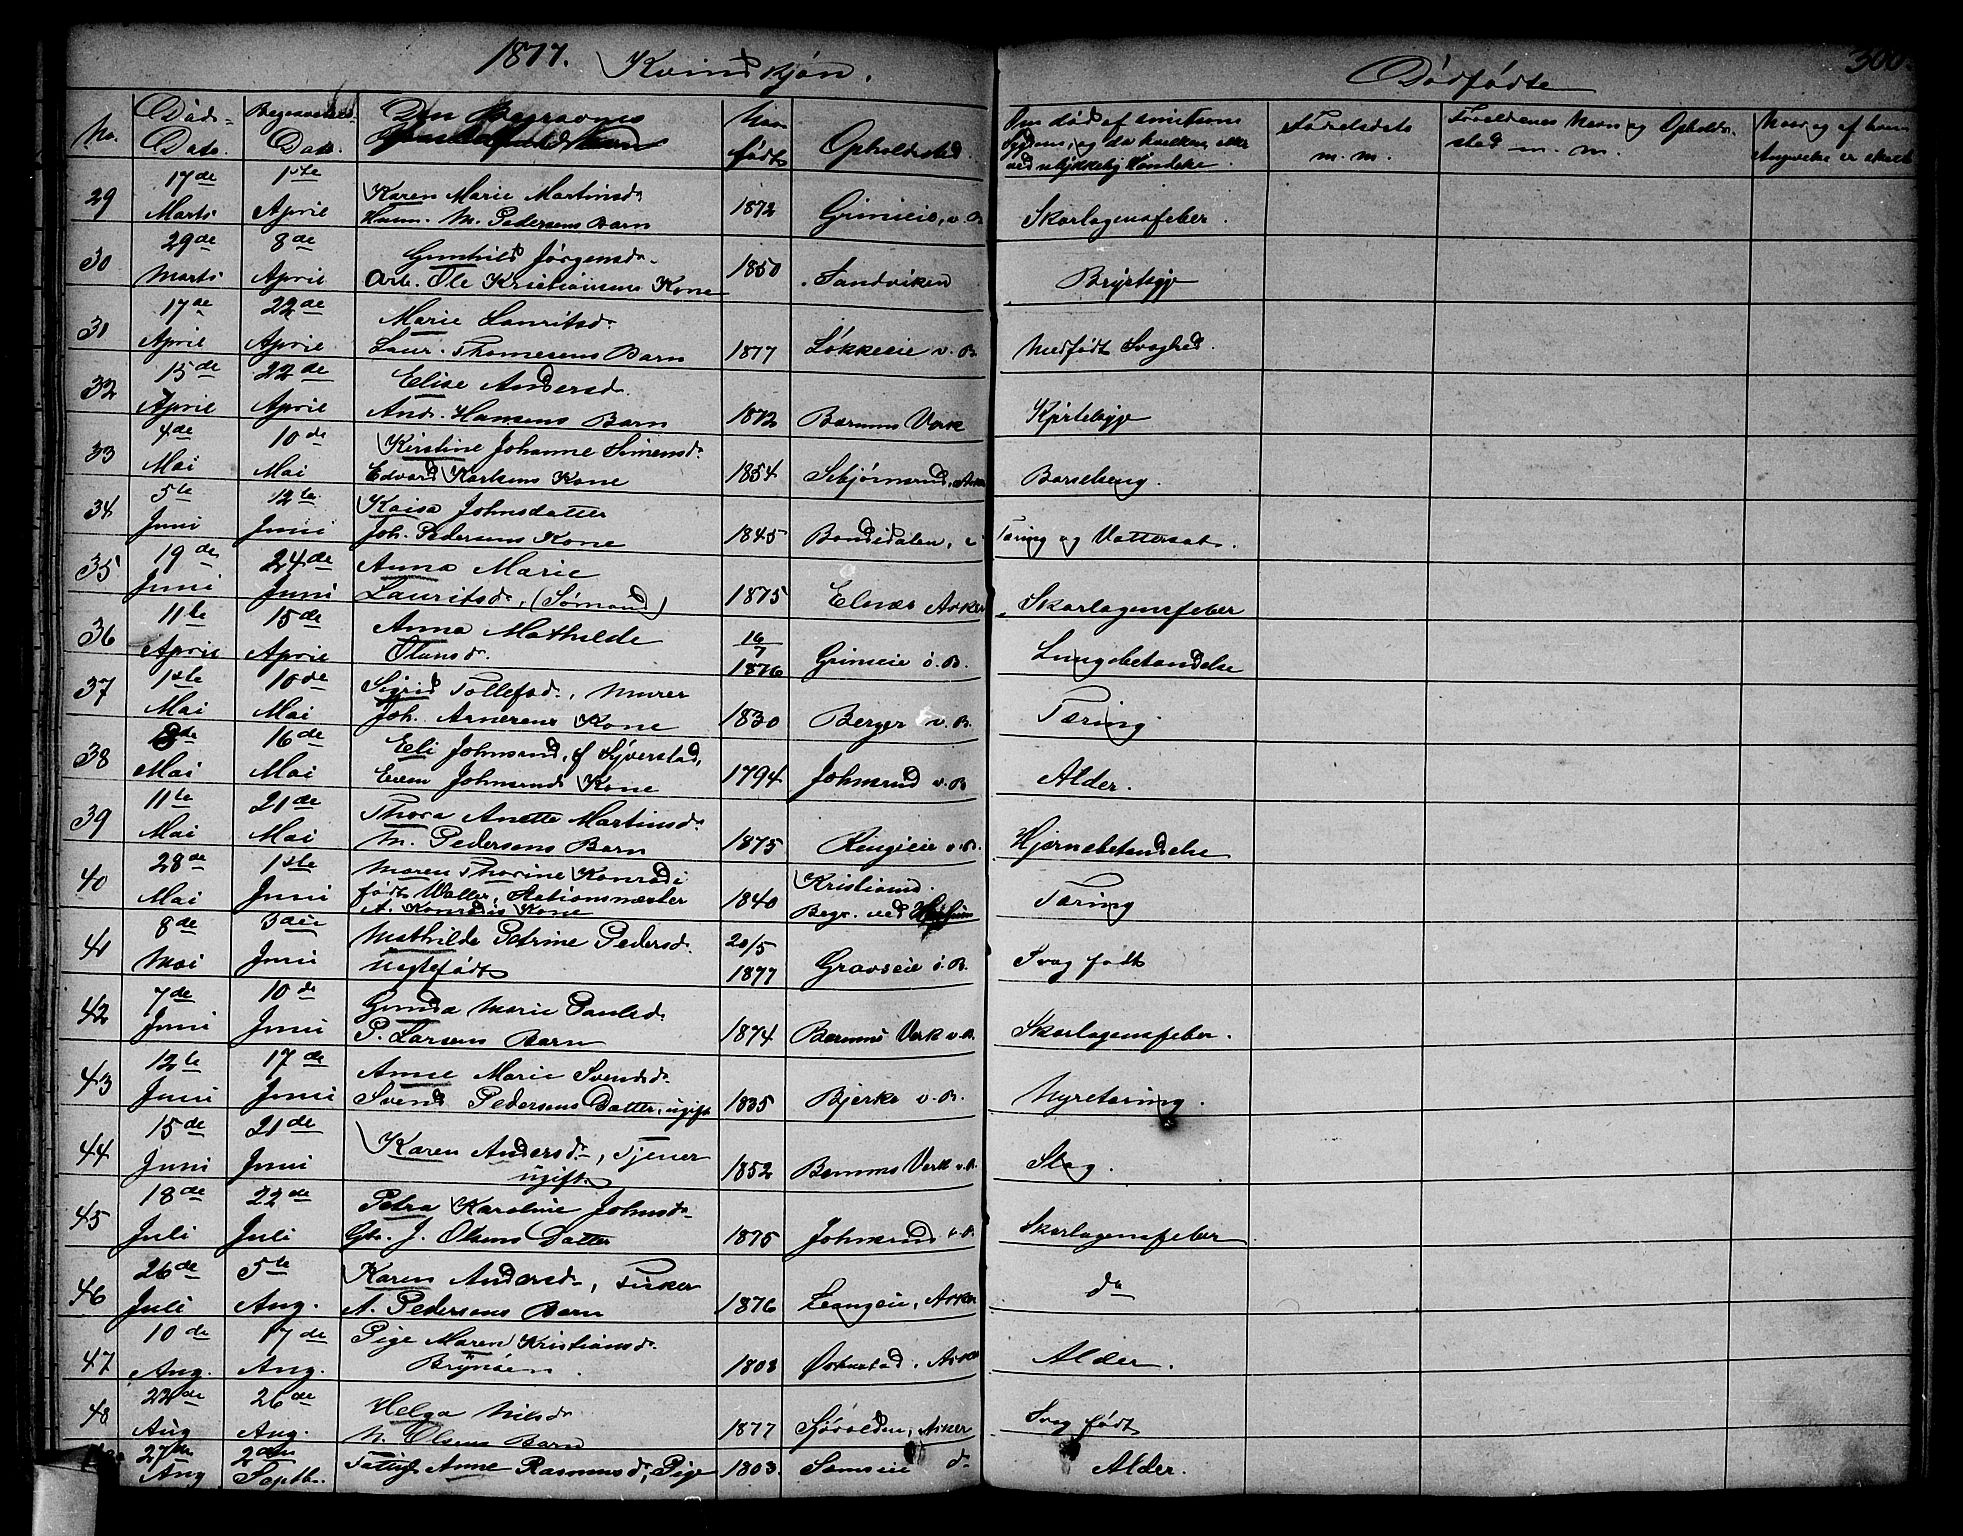 1877. Kvindkjøn.
Dødfødte
300.
No.
Død-
Dato.
Begravelses-
Dato.
Den Begravnes
Naar
født
Opholdssted.
Fødselsdato
m. m.
Forældrenes Navn og Opholds-
sted m. m.
29 17de Marts 1ste April Karen Marie Martinsd. 1872 Grinieie, v. B. Skarlagensfeber.
M. Pedersens Barn
30 29de Marts 8de April Gunhild Jørgensd. 1850 Sandviken Brystsyge
Arb. Ole Kristiansens Kone
31 17de April 22de April Marie Lauritsd. 1877 Løkkeeie v. B. Medfødt Svaghed.
Laur. Thomesens Barn
32 15de April 22de April Elise Andersd. 1872 Bærums Værk Kjertelsyge
And. Hansens Barn
33 4de Mai 10de Mai Kirstine Johanne Simensd. 1854 Barselseng.
Edvard Karlsens Kone
34 5te Juni 12te Juni Kaisa Johnsdatter 1845 Tæring og Vattersot.
Joh. Pedersens Kone
35 19de Juni 24de Juni Anna Marie 1875 Elnæs Asker Skarlagensfeber
Lauritsd. (Sømand)
36 11te April 15de April Anna Mathilde 16/7 1876 Grinieie ø. B. Lungebetændelse
Olausd.
37 1ste Mai 10de Mai Sigrid Tollefsd., Murer 1830 Berger v. B. Tæring.
Joh. Arnesens Kone
38 8de Mai 16de Mai Eli Johnsrud, f. Syverstad, 1794 Johnsrud v. B. Alder.
Even Johnsruds Kone
39 11te Mai 21de Mai Thora Anette Martinsd. 1875 Ringieie v. B. Hjernebetændelse
M. Pedersens Barn
40 28de Mai 1ste Juni Maren Thorine Konradi 1840 Kristiania. Tæring
født Waller, Stationsmester Begr. ved
A. Konradis Kone
41 8de Mai 3die Juni Mathilde Petrine Pedersd. 20/5 1877 Gravseie ø. B. Svag født
Uægtefødt
42 7de Juni 10de Juni Gunda Marie Paulsd. 1874 Bærums Værk v. B. Skarlagensfeber.
P. Larsens Barn
43 12te Juni 17de Juni Anne Marie Svendsd. 1835 Bjerke v. B. Nyretæring.
Svend Pedersens Datter, ugift
44 15de Juni 21de Juni Karen Andersd., Tjener 1852 Bærums Værk v. B. Slag.
ugift
45 18de Juli 22de Juli Petra Karoline Johnsd. 1875 Johnsrud v. B. Skarlagensfeber
Gbr. J. Olsens Datter
46 26de Juli 5te Aug. Karen Andersd., Fisker 1876 Leangeie, Asker do
A. Pedersens Barn
47 10de Aug. 17de Aug. Pige Maren Kristiansd. 1803 Asker Alder.
Brynsøen.
48 22de Aug 26de Aug. Helga Nilsd. 1877 Sjøvolden, Asker Svag født
N. Olsens Barn
27de Aug 2den Septb. Fattigl. Anne Rasmusd., Pige 1803. Semseie do Alder.